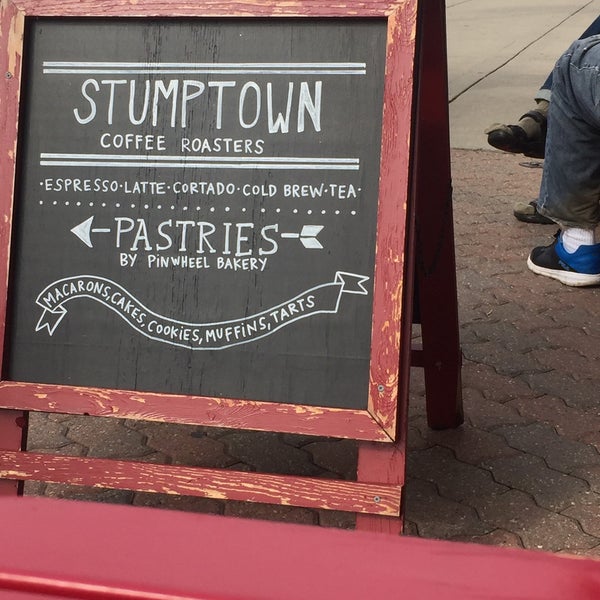 STUMPTOWN
COFFEE ROASTERS
·ESPRESSO·LATTE·CORTADO·COLD BREW·TEA·
PASTRIES
BY PINWHEEL BAKERY
MACARONS, CAKES, COOKIES, MUFFINS, TARTS